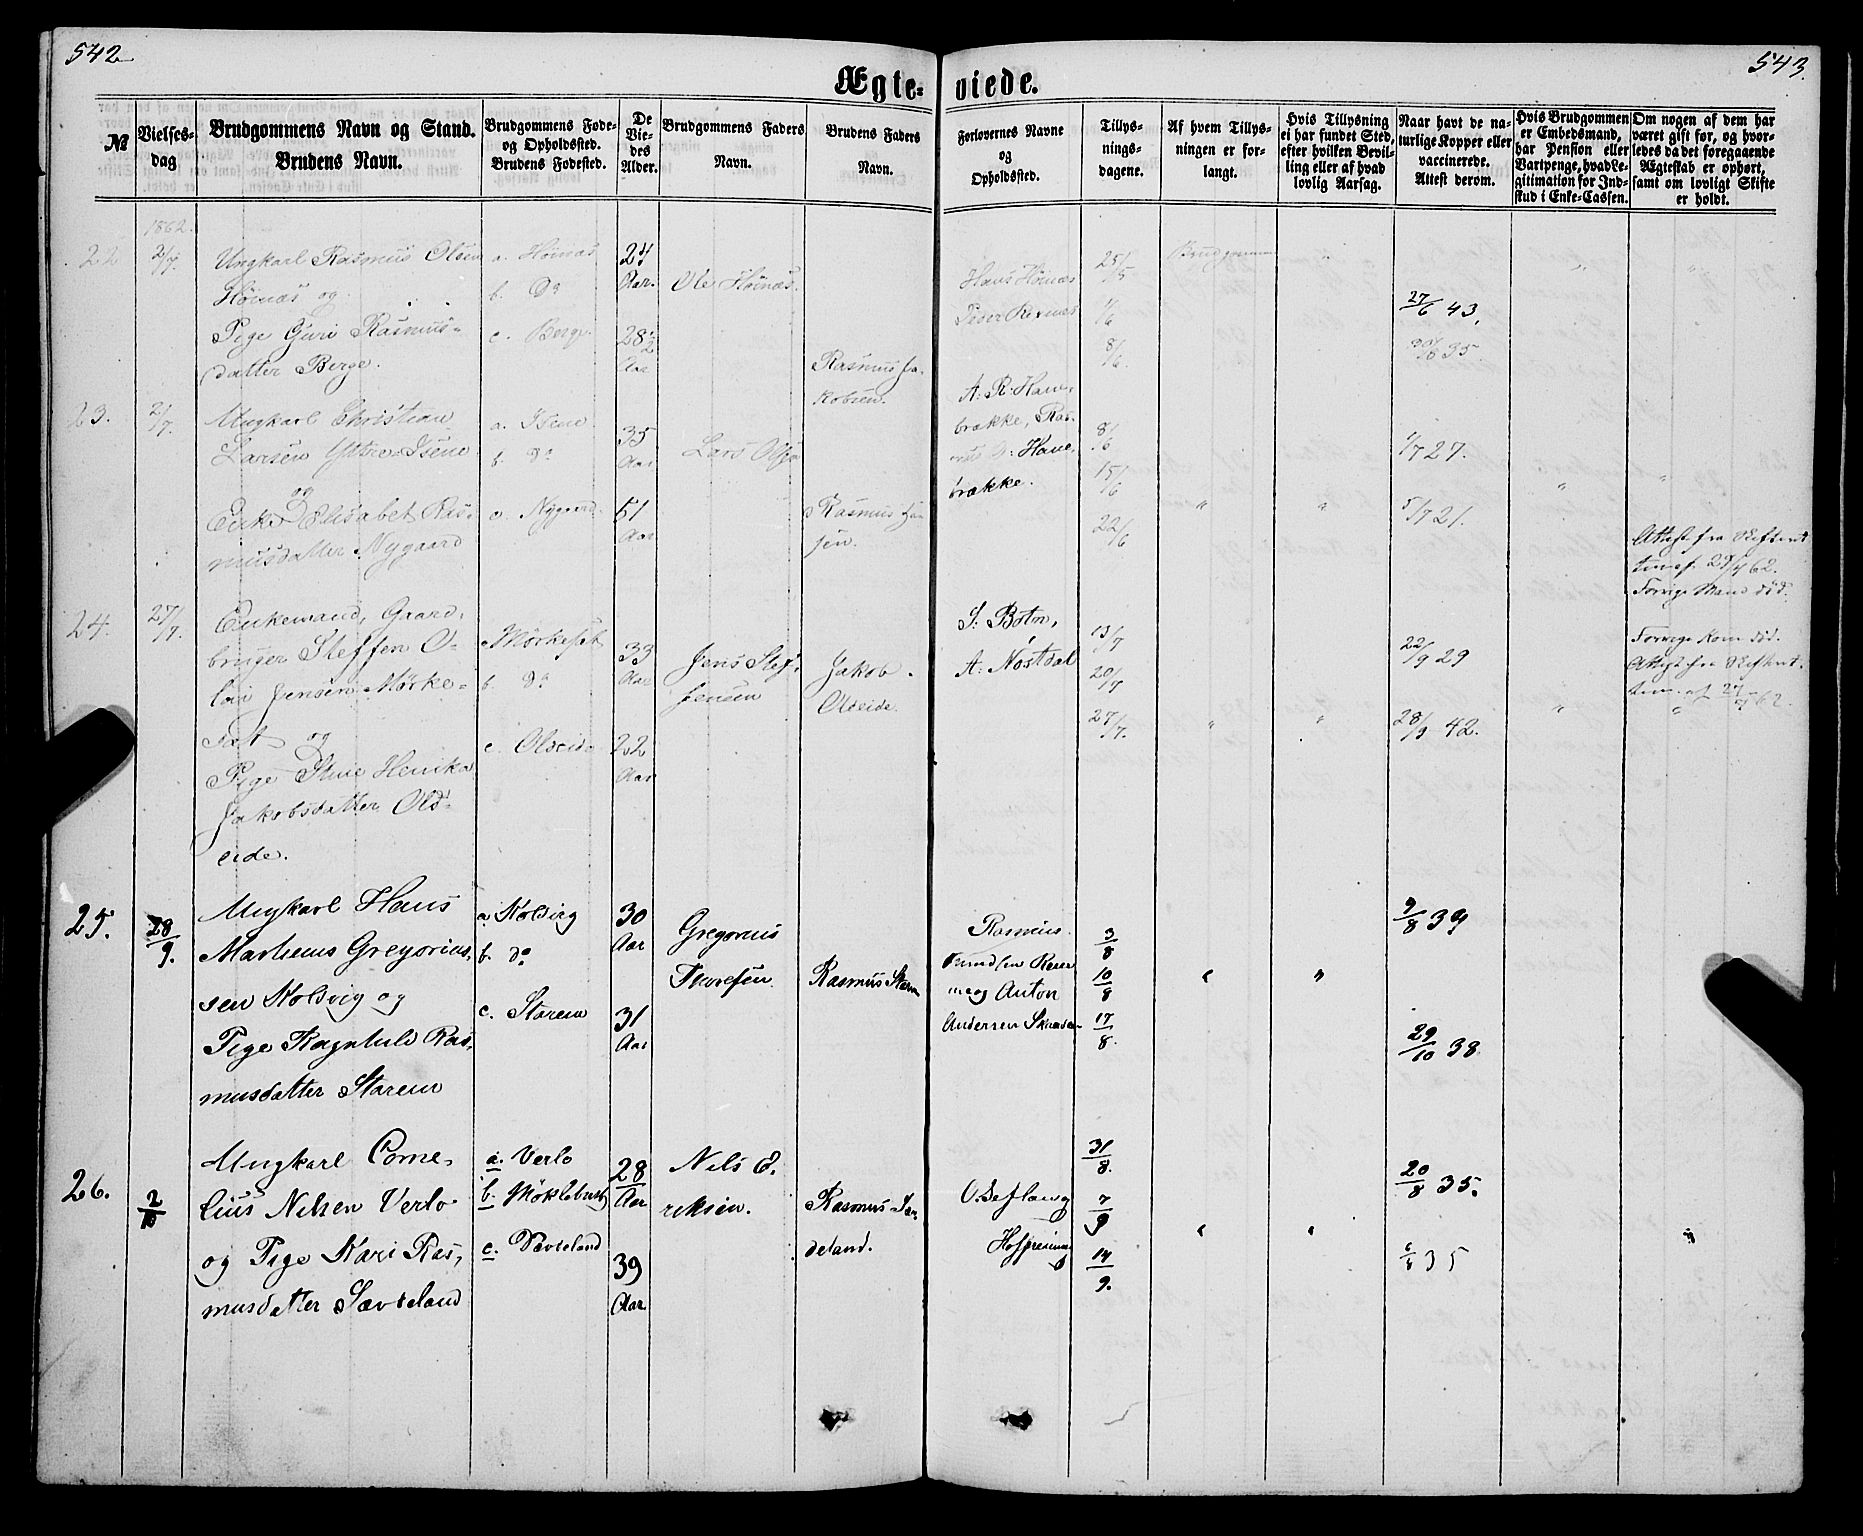 542
543.
Ægte-
viede.
№
Vielses-
dag
Brudgommens Navn og Stand.
Brudens Navn.
Brudgommens Føde-
og Opholdssted.
Brudens Fødested.
De
Vie-
des
Alder.
Brudgommens Faders
Navn.
Brudens Faders
Navn.
Forlovernes Navne
og
Opholdssted.
Tillys-
nings-
dagene.
Af hvem Tillys-
ningen er for-
langt.
Hvis Tillysning
ei har fundet Sted,
efter hvilken Bevil-
ling eller af hvad
lovlig Aarsag.
Naar havt de na-
turlige Kopper eller
vaccinerede.
Attest derom.
Hvis Brudgommen
er Embedsmand,
har Pension eller
Vartpenge, hvad Le-
gitimation for Ind-
skud i Enke-Cassen.
Om nogen af dem har
været gift før, og hvor-
ledes da det foregaaende
Ægteskab er ophørt,
samt om lovligt Skifte
er holdt.
1862.
22
2/7.
Ungkarl Rasmus Olsen
Hoinæs og
Pige Guri Rasmus-
datter Berge.
a. Hoinæs
b. Do
c. Berge
24
Aar.
28½
Aar
Ole Hoinæs.
Rasmus Ja-
kobsen.
Hans Hoinæs
Peder
25/5
1/6
8/6.
Brudgommen
27/6 43.
35.
23.
2/7.
Ungkarl Christian
Larsen Yttre-Isene
og
Enke Elisabet Ras-
musdatter Nygaard
a. Isene
b. do
c. Nygaard
35
Aar
51
Aar
Lars Olsen
Rasmus Han-
sen.
A. R. Hane-
brække, Ras-
mus Hane-
brække.
8/6
15/6
22/6
1/7 27.
5/7 21.
Attest fra Skifteret
62.
Forrige Mand død.
24.
27/7.
Enkemand, Gaard-
bruger Steffen O-
lai Jensen Mørke-
sæt og
Pige Stine Henrika
Jakobsdatter Ols-
eide.
a Mørkesæt
b. do
c. Olseide
33
Aar
22
Aar
Jens Stef-
fensen
Jakob
Olseide.
S. Botn,
A. Nøstdal
13/7
20/7
27/7.
22/9 29
28/9 42.
Forrige Kone død.
Attest fra Skifteret
62.
25.
28/9.
Ungkarl Hans
Matheus Gregorius-
sen Kolsvig og
Pige Ragnhild Ras-
musdatter Starem
a Kolsvig
b. do
c. Starem
30
Aar
31
Aar
Gregorius
Thoresen.
Rasmus Starem
Rasmus
og Anton
Andersen
3/8
10/8
17/8.
9/8 39
29/10 38
26.
2/10
Ungkarl Corne-
lius Nilsen Verlo
og Pige Kari Ras-
musdatter Sæveland
a. Verlo
b. Møklebust
c. Sæveland
28
Aar
39
Aar
Nils E-
riksen.
Rasmus Sæ-
veland.
31/8.
7/9
14/9.
20/8 35.
6/8 35